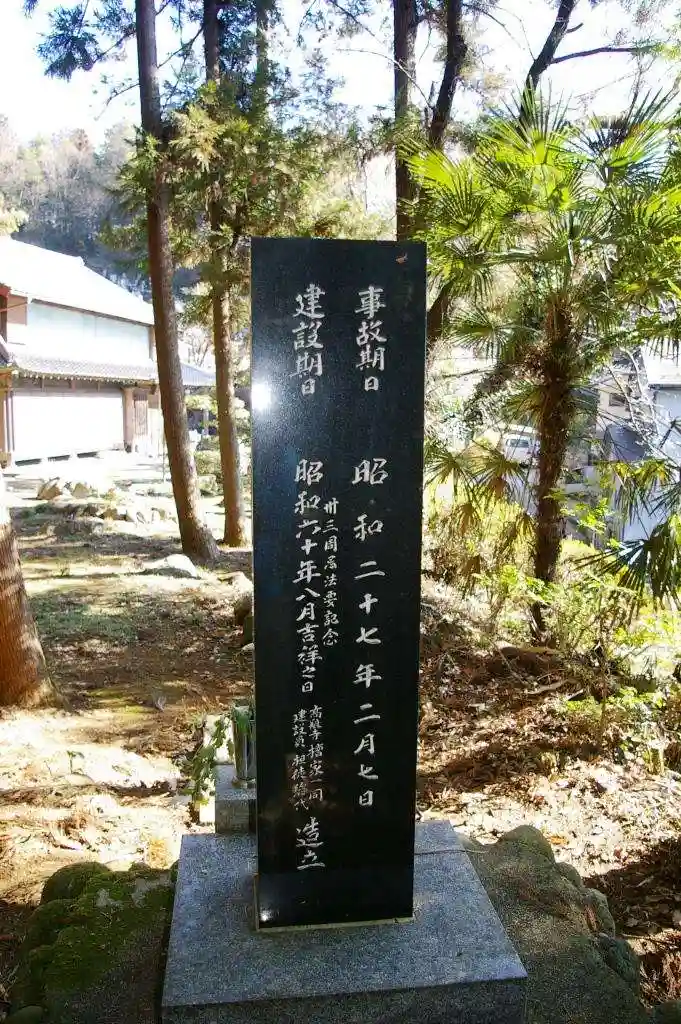 事故期日 昭和二十七年二月七日
卅三周忌法要記念
建設期日 昭和六十年八月吉祥之日
檀家一同
建設員
造立